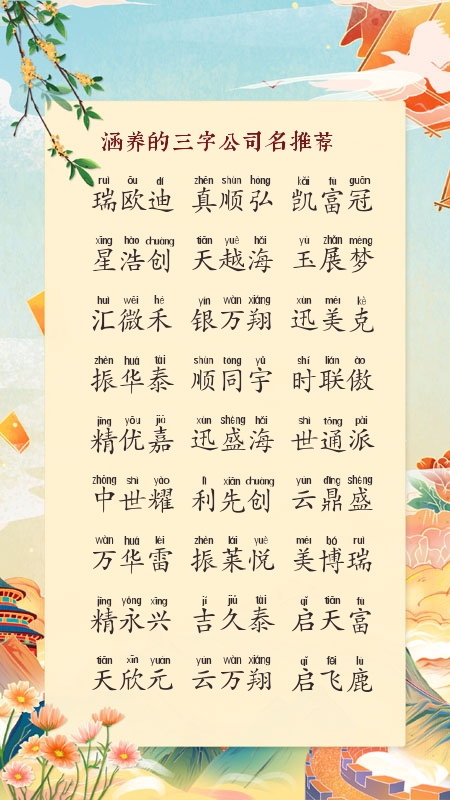 涵养的三字公司名推荐
ruì ōu dí zhēn shùn hóng kǎi fù guān
瑞欧迪 真顺弘 凯富冠
xīng hào chuàng tiān yuè hǎi yù zhǎn mèng
星浩创 天越海 玉展梦
huì wēi hé yín wàn xiáng xùn měi kè
汇微禾 银万翔 迅美克
zhèn huá tài shùn tóng yǔ shí lián ào
振华泰 顺同宇 时联傲
jīng yōu jiā xùn shèng hǎi shì tōng pài
精优嘉 迅盛海 世通派
zhōng shì yào lì xiān chuàng yún dǐng shèng
中世耀 利先创 云鼎盛
wàn huá léi zhèn lái yuè měi bó ruì
万华雷 振莱悦 美博瑞
jīng yǒng xīng jí jiǔ tài qǐ tiān fù
精永兴 吉久泰 启天富
tiān xīn yuán yún wàn xiáng qǐ fēi lù
天欣元 云万翔 启飞鹿